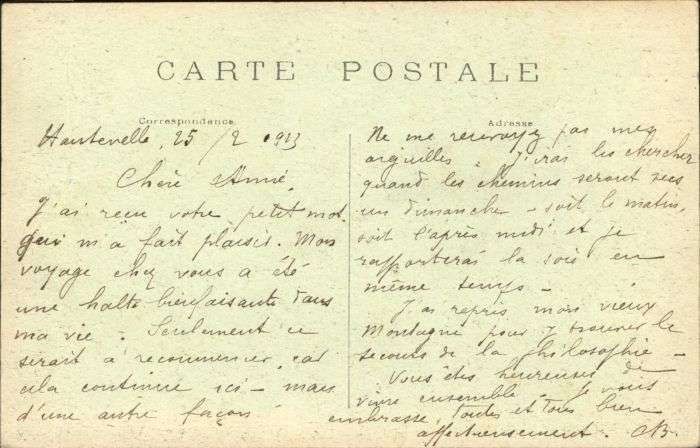 CARTE POSTALE
Correspondence
Hauteville, 25/2 1913
Chère Amie,
J'ai reçu votre petit mot
qui m'a fait plaisir. Mon
voyage chez vous a été
une halte bienfaisante dans
ma vie. Seulement ce
serait à recommencer, car
cela continue ici - mais
d'une autre façon
Adresse
Ne me renvoyez pas mes
aiguilles. J'irai les chercher
quand les chemins seront secs
un dimanche - soit le matin,
soit l'après midi et je
rapporterai la soie en
même temps -
J'ai repris mon vieux
Montagne pour y trouver le
secours de la philosophie -
Vous êtes heureuses de
vivre ensemble. Je vous
embrasse, toutes et tous bien
affectueusement. CB.